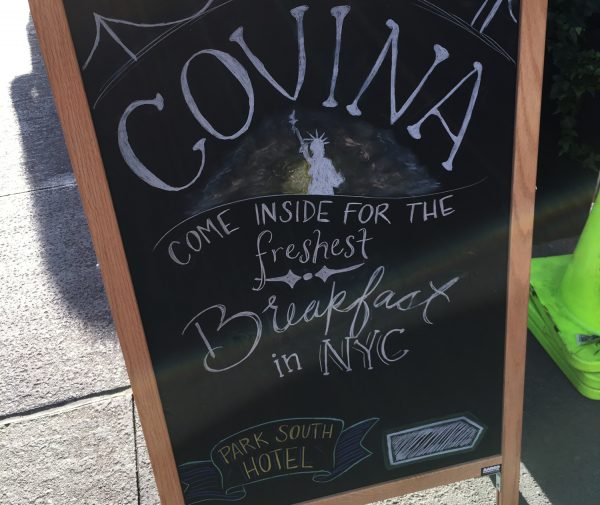 COVINA
COME INSIDE FOR THE
freshest
Breakfast
in NYC
PARK SOUTH
HOTEL